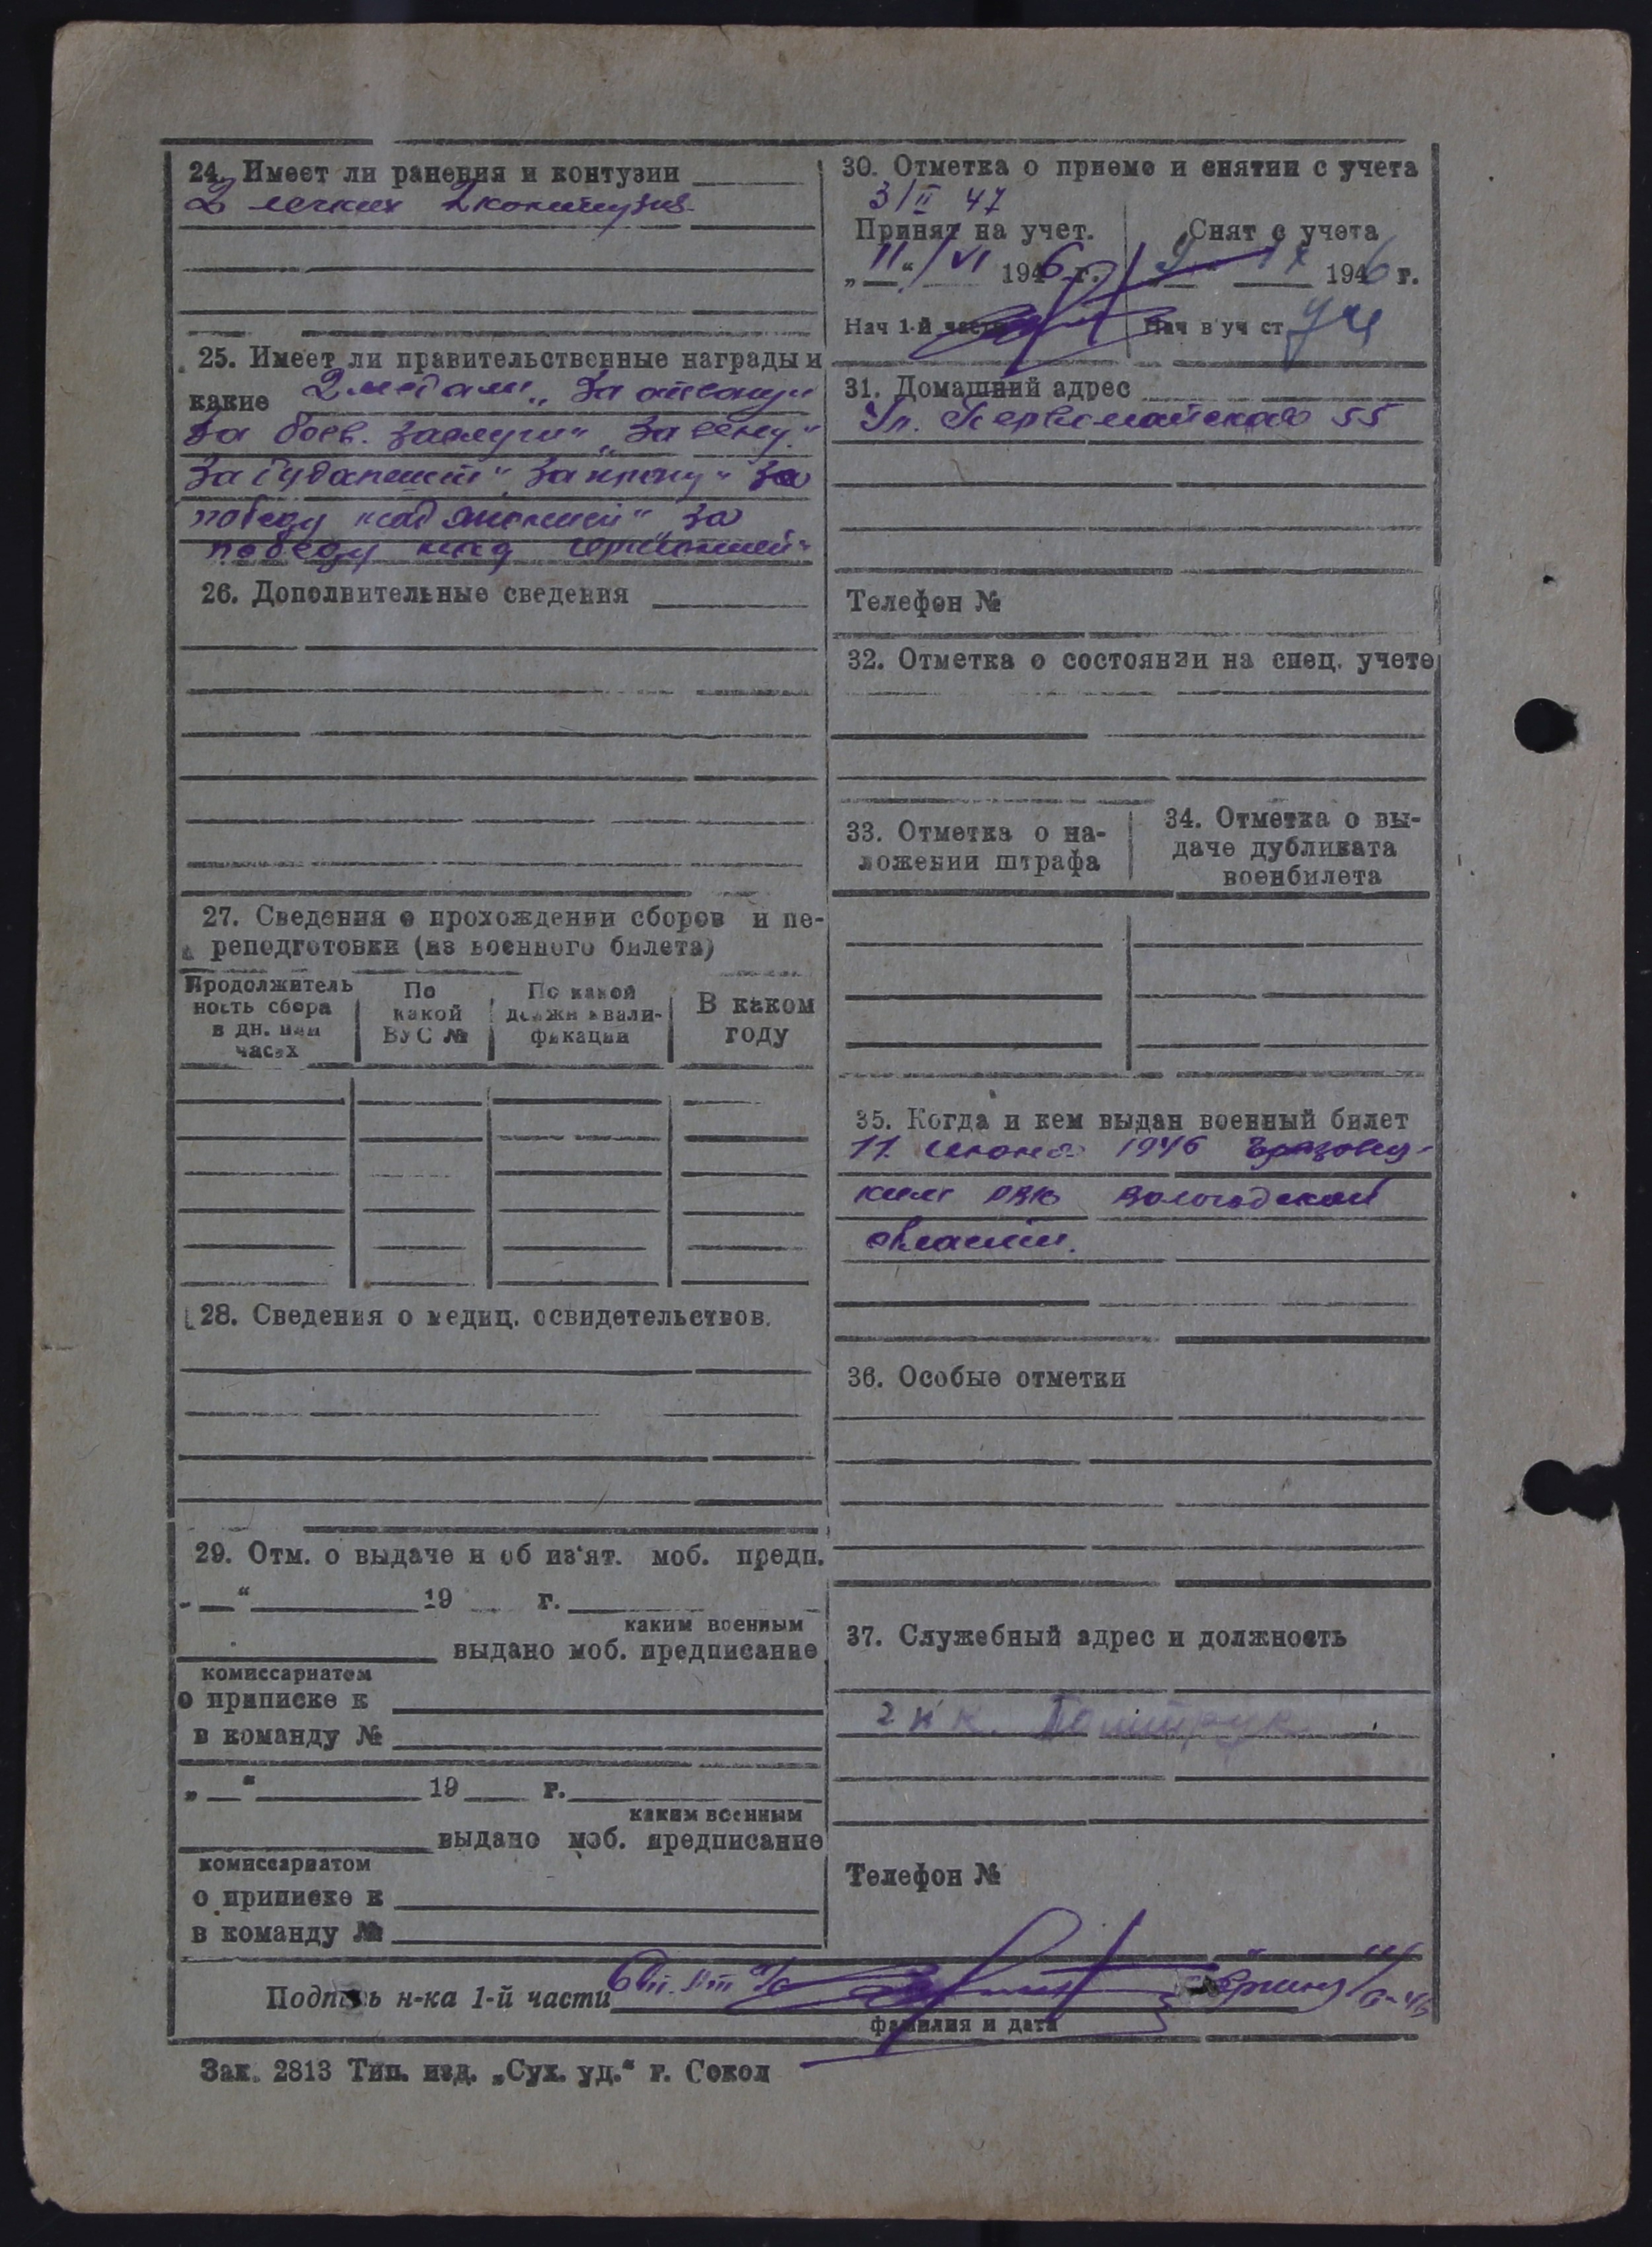 24. Имеет ли ранения и контузии
2 легких 2 контузия
25. Имеет ли правительственные награды и
какие 2 медали „За отвагу"
За боев. заслуги" „За вену"
За будапешт" За прагу" За
победу над Японией" за
победу над германией"
26. Дополнительные сведения
27. Сведения о прохождении сборов и пе-
реподготовки (из военного билета)
Продолжитель
ность сбора
в дн. или
часах
По
какой
ВУС №
По какой
должн квали-
фикации
В каком
году
28. Сведения о медиц. освидетельствов.
29. Отм. о выдаче и об из'ят. моб. предп.
„ “ 19 г.
каким военным
выдано моб. предписание
комиссариатом
о приписке к
в команду №
„ “ 19 г.
каким военным
выдано моб. предписание
комиссариатом
о приписке к
в команду №
30. Отметка о приеме и снятии с учета
3/II 47
Принят на учет.
Снят с учета
„11“/VI 1946 г.
9 IX 1946 г.
Нач 1-й части
Нач в уч ст
31. Домашний адрес
Ул. Первомайская 55
Телефон №
32. Отметка о состоянии на спец. учете
33. Отметка о на-
ложении штрафа
34. Отметка о вы-
даче дубликата
военбилета
35. Когда и кем выдан военный билет
11 июня 1946
ким РВК Вологодской
области.
36. Особые отметки
37. Служебный адрес и должность
Телефон №
Подпись н-ка 1-й части
фамилия и дата
Зак. 2813 Тип. изд. „Сух. уд.“ г. Сокол